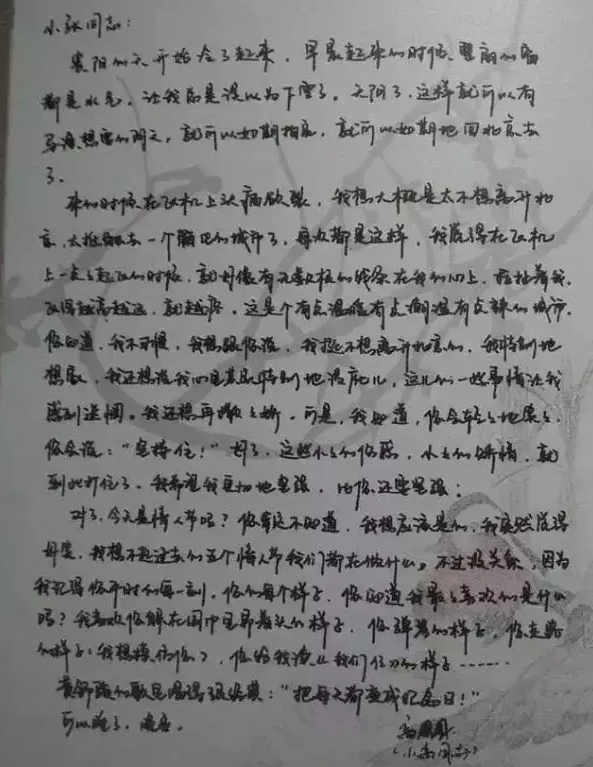 小张同志：
襄阳的天开始冷了起来，早晨起来的时候，里的窗
都是水气，让我总是误以为下雪了。天阴了，这样就可以有
导演想要的阴天，就可以如期拍完，就可以如期地回北京去
了。
来的时候在飞机上头痛欲裂，我想大概是太不想离开北
京，去一个陌生的城市了，每次都是这样，我觉得在飞机
上一点点起飞的时候，就好像有无数根的线条在我的心上，拉扯着我，
飞得越高越远，就越疼。这是个有点温暖有点潮湿有点辣的城市。
你知道，我不习惯，我想跟你说，我挺不想离开北京的，我特别地
想家，我还想说我心里其实特别地没底儿，这儿的一些事情让我
感到迷惘。我还想再撒撒娇。可是，我知道，你会轻轻地笑笑，
你会说：“坚持住！”好了，这些小小的伤感，小小的矫情，就
到此打住了。我希望我更加地坚强，比你还要坚强：
对了，今天是情人节吗？你肯定不知道，我想应该是的，我突然觉得
好笑，我想不起过去的五个情人节我们都在做什么。不过没关系，因为
我记得你平时的每一刻，你的每个样子，你知道我最最喜欢的是什么
吗？我喜欢你躲在围巾里昂着头的样子，你弹琴的样子，你走路
的样子（我想模仿你），你给我读《我们仨》的样子……
黄舒骏的歌里唱得很经典：“把每天都变成纪念日！”
可以睡了，晚安。
（小同志）